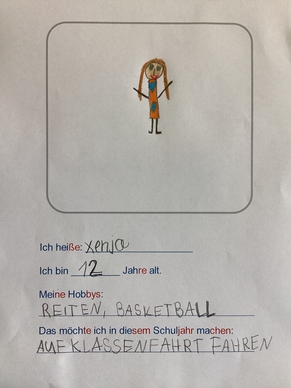 Ich heiße: xenja
Ich bin 12 Jahre alt.
Meine Hobbys:
REITEN, BASKETBALL
Das möchte ich in diesem Schuljahr machen:
AUF KLASSENFAHRT FAHREN